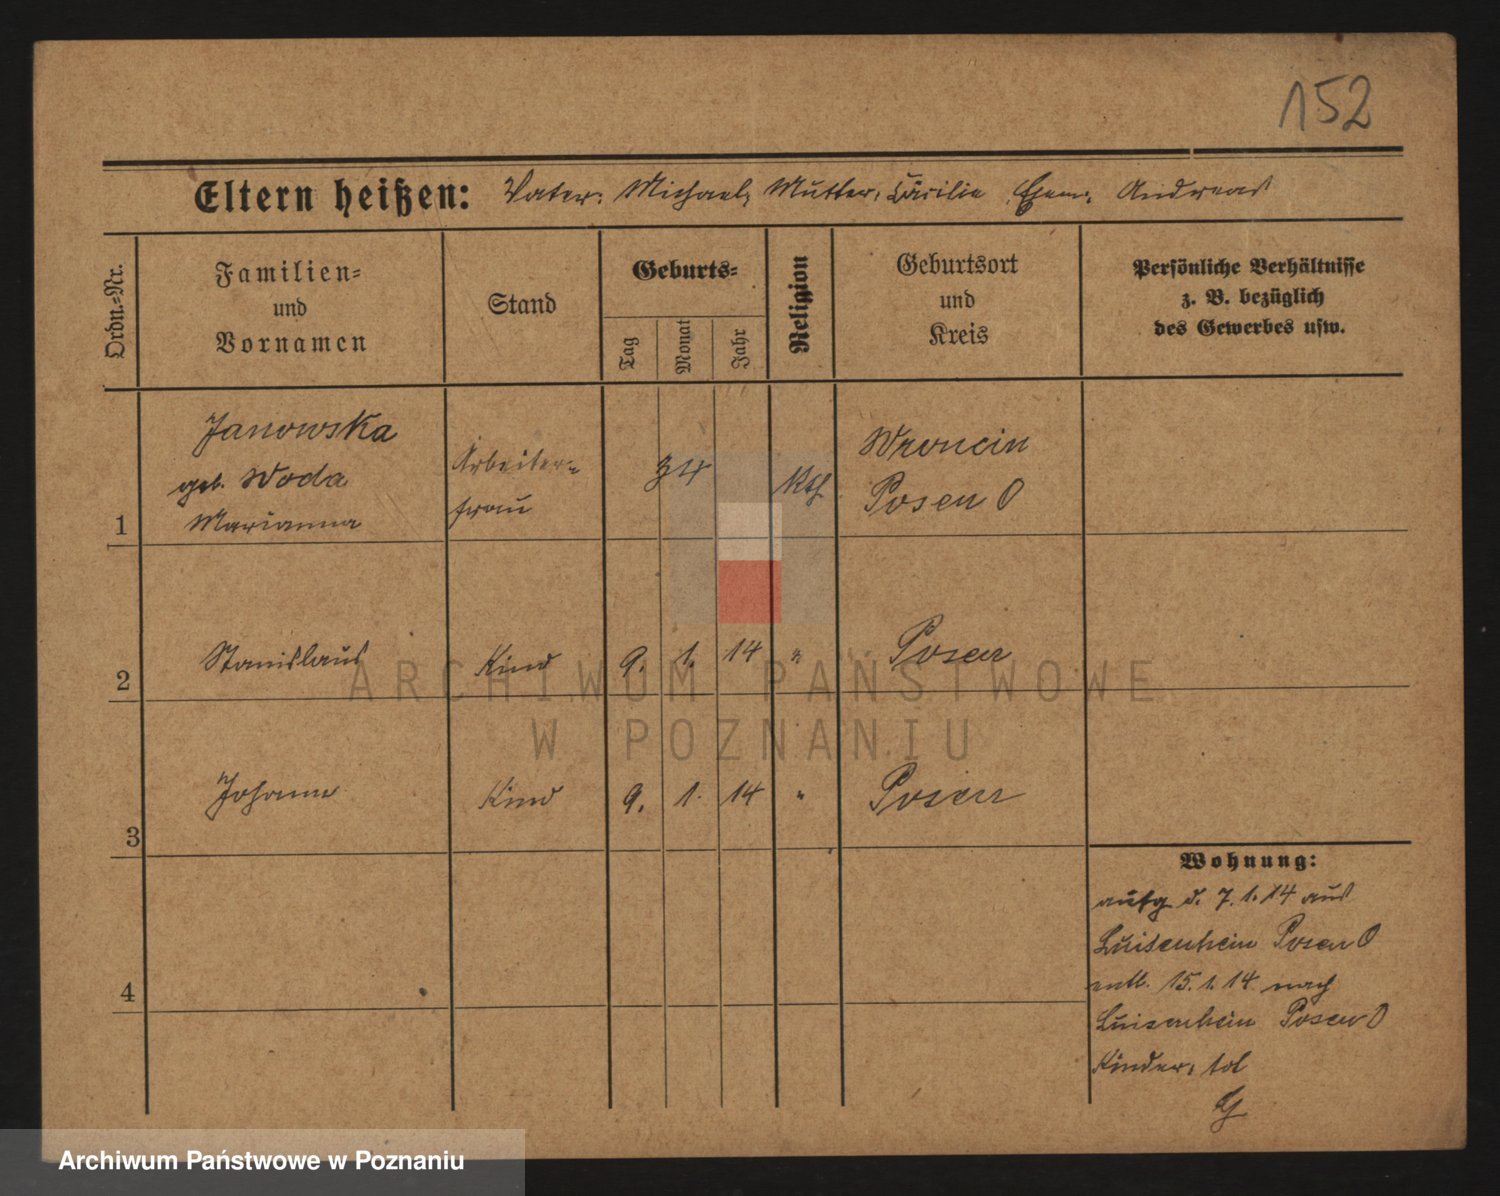 152
Eltern heißen: Vater: Michael, Mutter: Cäcilie Ehem: Andreas
Ordn.=Nr.
Familien=
und
Vornamen
Stand
Geburts=
Tag
Monat
Jahr
Religion
Geburtsort
und
Kreis
Persönliche Verhältnisse
z. B. bezüglich
des Gewerbes usw.
1
Janowska
geb. Woda
Marianna
Arbeiter=
frau
34
Kth
Wroncin
Posen O
2
Stanislaus
Kind
9. 1. 14
"
Posen
3
Johann
Kind
9. 1. 14
"
Posen
4
Wohnung:
aufg d. 7.1.14 aus
Luisenhein Posen O
entl. 15.1.14 nach
Luisenhein Posen O
Kinder:
ARCHIWUM PAŃSTWOWE
W POZNANIU
Archiwum Państwowe w Poznaniu